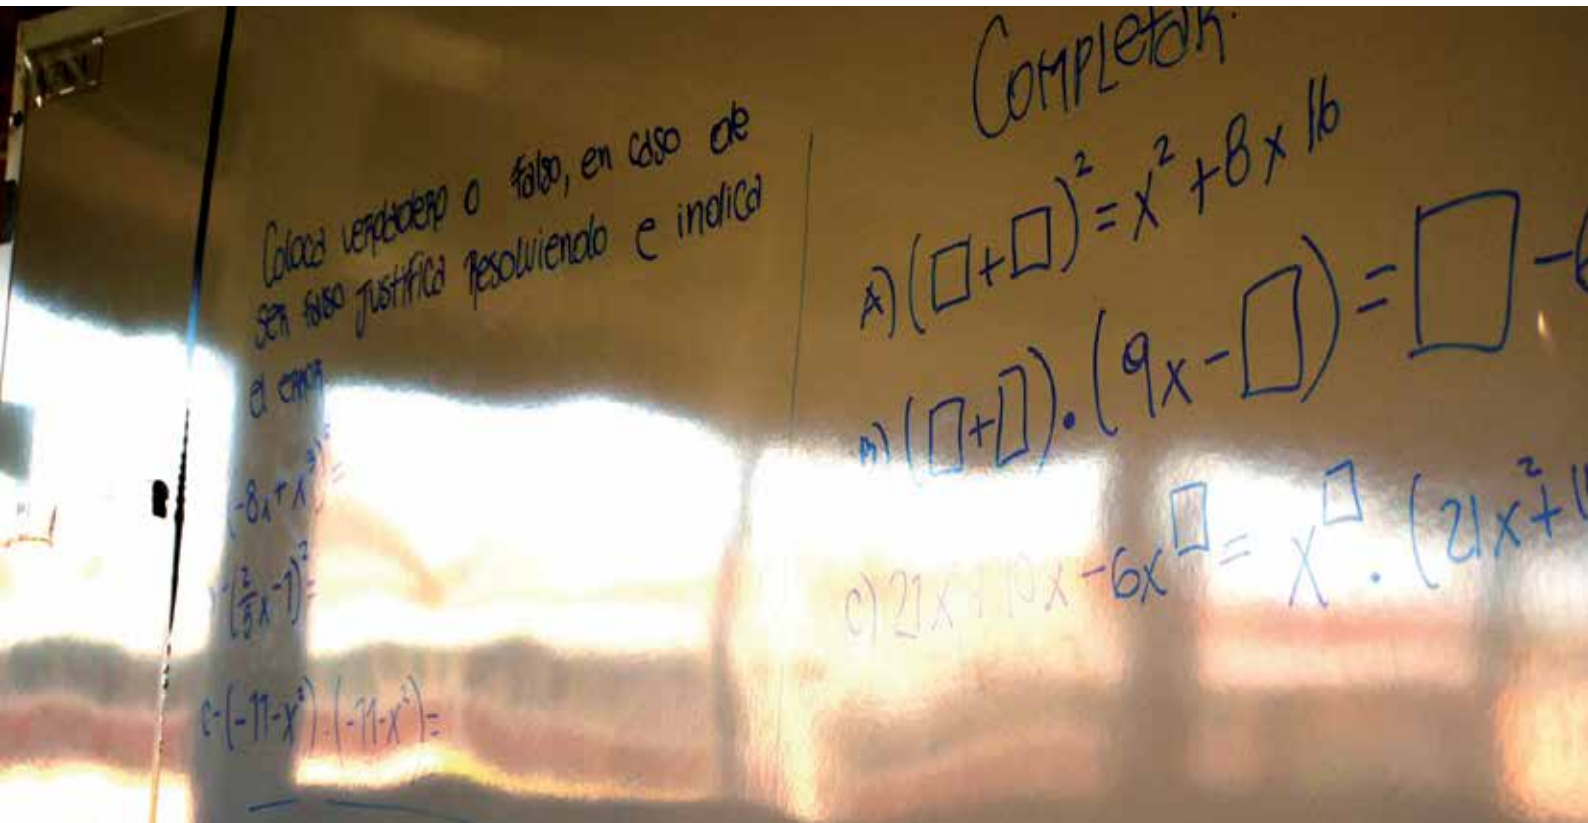 Coloca verdadero o falso, en caso de
ser falso justifica resolviendo e indica
el error
(-8x + x³)² =
-(2/5 x - 1)² =
c-(-11-x²).(-11-x²)=
Completar:
A) (□+□)² = x² + 8x 16
B) (□+□).(9x-□) = □ -
C) 21x + 10x - 6x^□ = x^□ . (21x² +